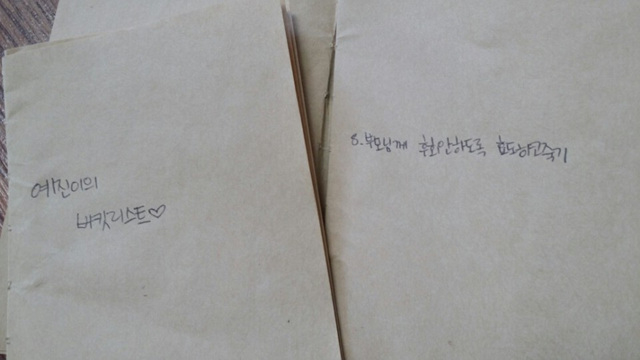 예진이의
버킷리스트♡
8.부모님께 후회안하도록 효도하고죽기